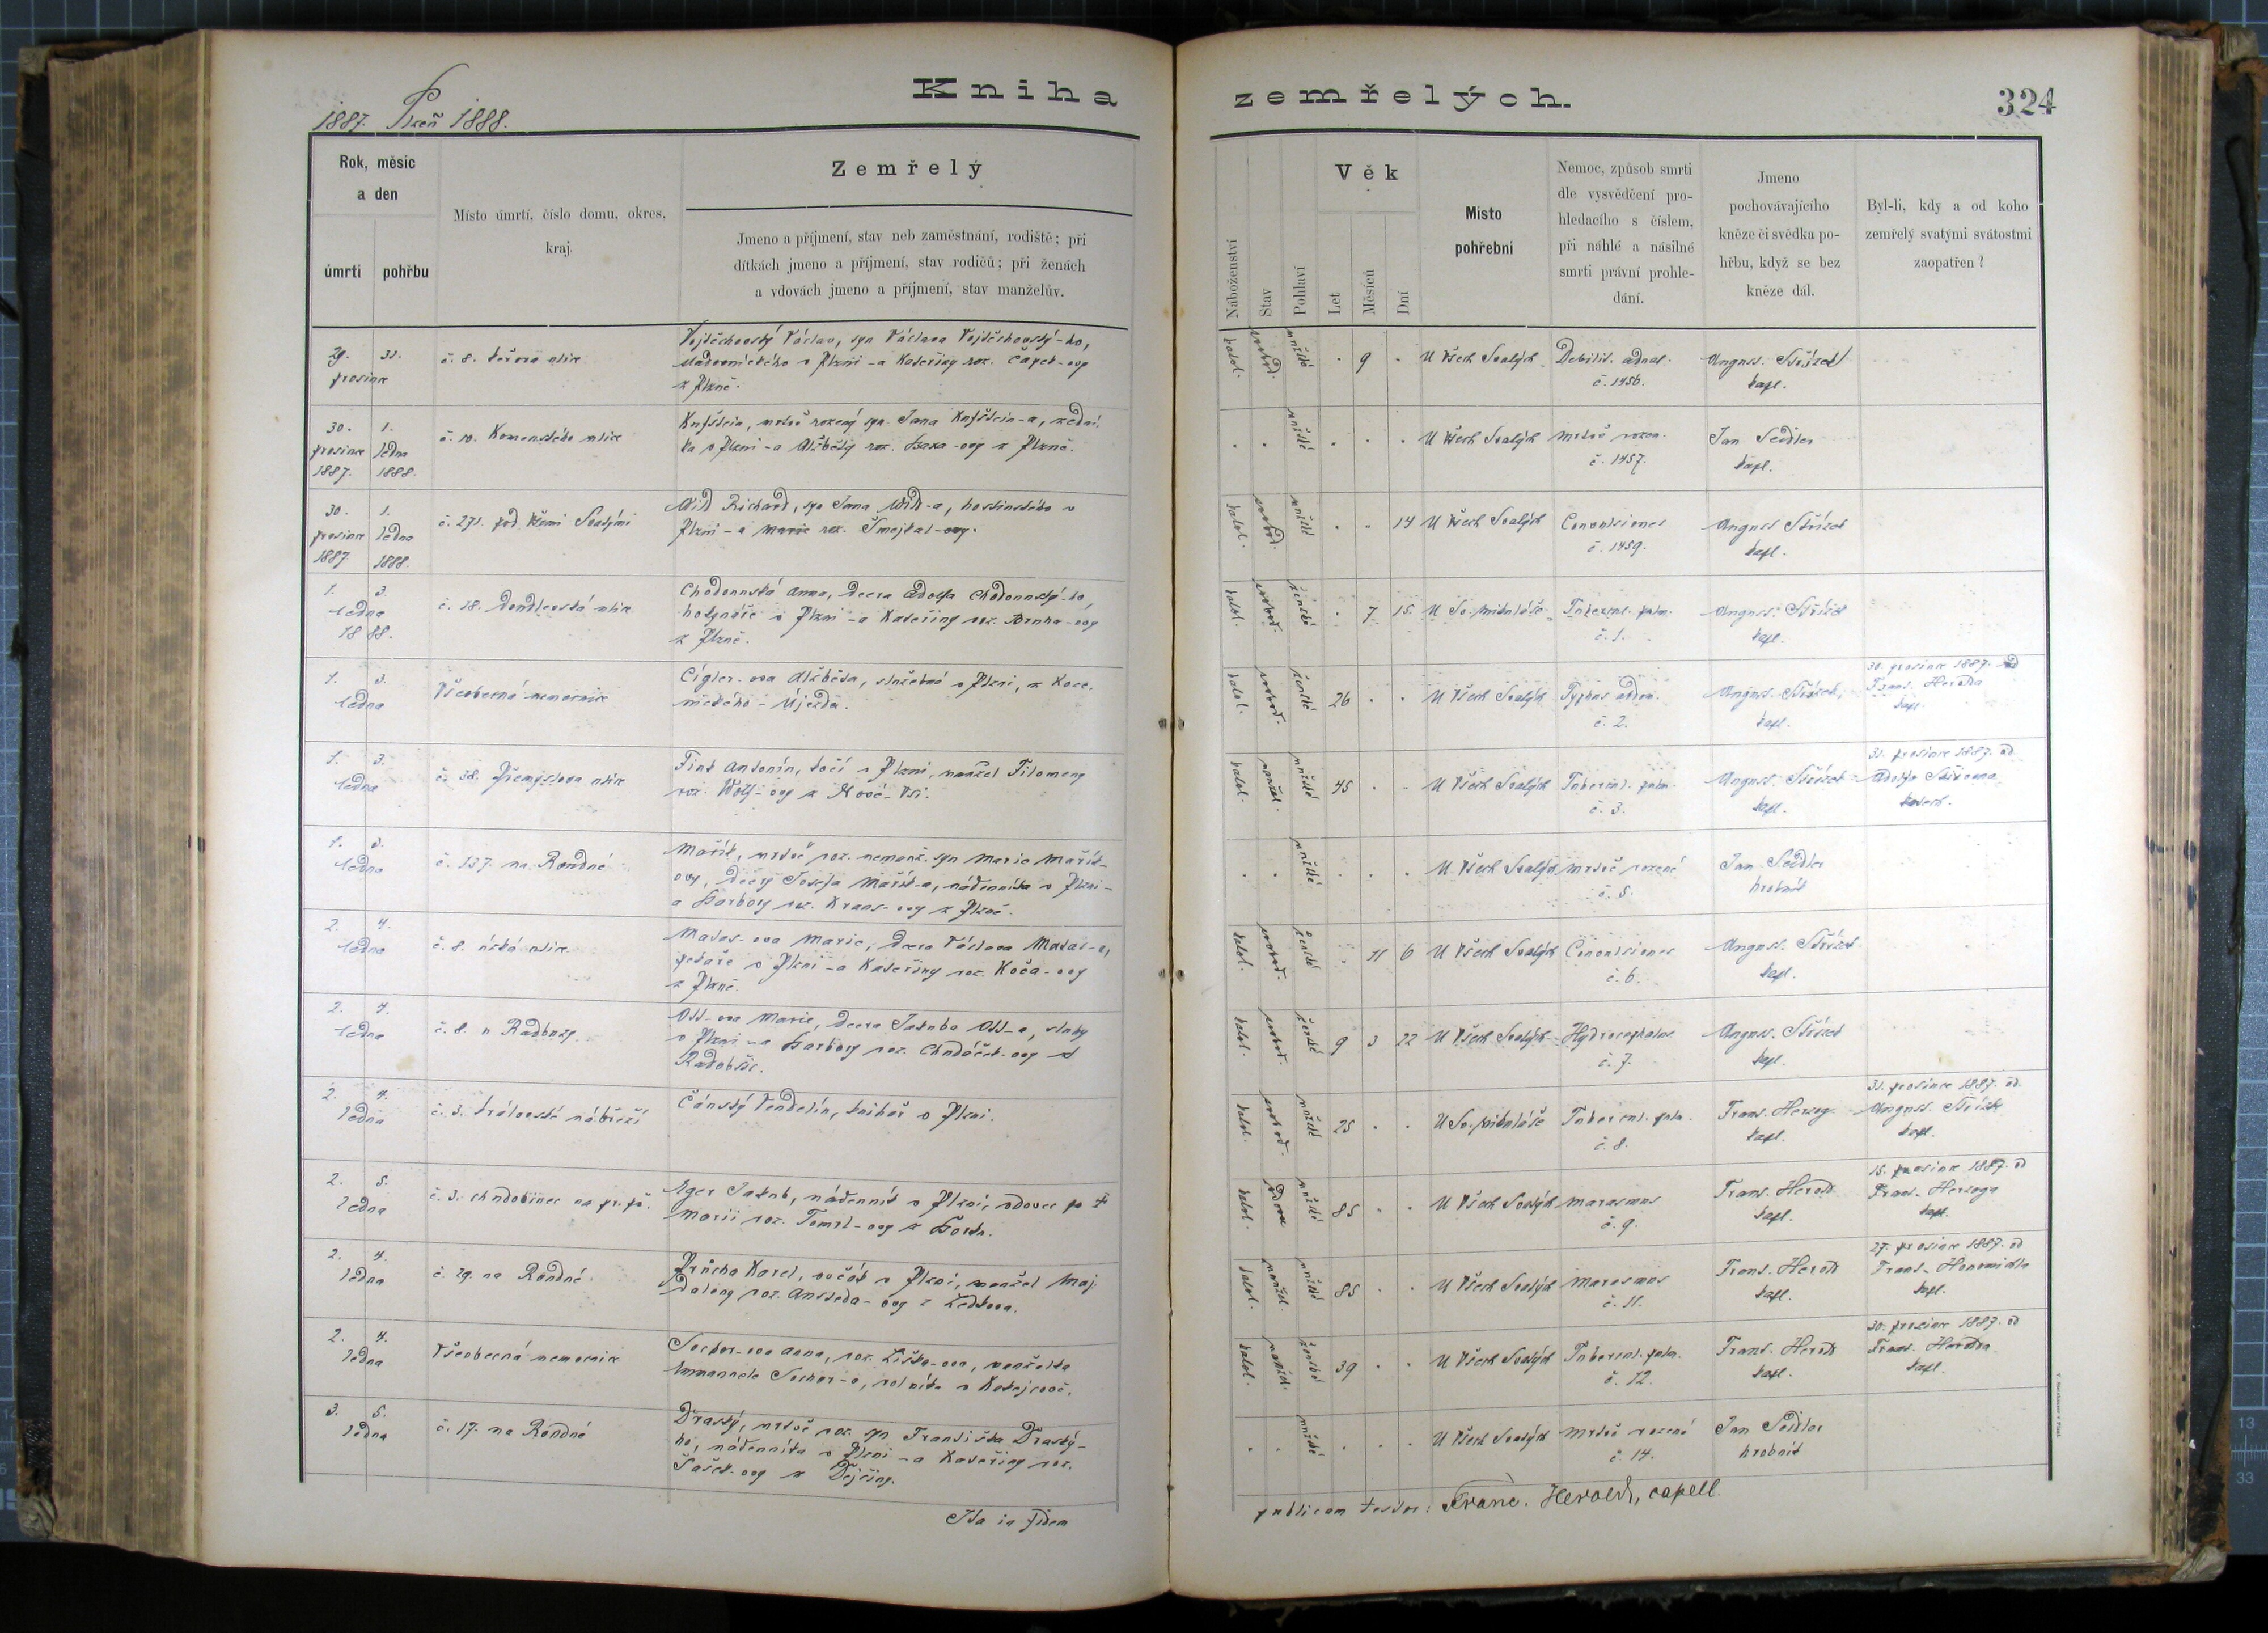 Kniha zemřelých.
324
1887. Plzeň 1888.
Rok, měsíc
a den
úmrtí
pohřbu
Místo úmrtí, číslo domu, okres,
kraj.
Zemřelý
Jmeno a příjmení, stav neb zaměstnání, rodiště; při
dítkách jmeno a příjmení, stav rodičů; při ženách
a vdovách jmeno a příjmení, stav manželův.
Náboženství
Stav
Pohlaví
Věk
Let
Měsíců
Dní
Místo
pohřební
Nemoc, způsob smrti
dle vysvědčení pro-
hledacího s číslem,
při náhlé a násilné
smrti právní prohle-
dání.
Jmeno
pochovávajícího
kněze či svědka po-
hřbu, když se bez
kněze dál.
Byl-li, kdy a od koho
zemřelý svatými svátostmi
zaopatřen?
29. 31.
prosince
č. 8. ulice
Vojtěchovský Václav, syn Václava Vojtěchovský-ho,
v Plzni - a Kateřiny roz. Čapek-ovy
z Plzně.
katol. svobod. mužské . 9 . U Všech Svatých
č. 1456.
August. Střízek
kapl.
30. 1.
prosince ledna
1887. 1888.
č. 10. Komenského ulice
Kufštein, mrtvě rozený syn Jana Kufštein-a, zední-
ka v Plzni - a Alžběty roz. z Plzně.
. . mužské . . . U Všech Svatých mrtvě rozen.
č. 1457.
Jan Seidler
kapl.
30. 1.
prosince ledna
1887 1888.
č. 271. pod Všemi Svatými
Wild Richard, syn Jana Wild-a, hostinského v
Plzni - a Marie roz. Smejkal-ovy.
katol. svobod. mužské . „ 14 U Všech Svatých Convulsiones
č. 1459.
August Střízek
kapl.
1. 3.
ledna
1888.
č. 18. Doudlevská ulice
Chodounská Anna, dcera Adolfa Chodounský-ho,
v Plzni - a Kateřiny roz. Brnha-ovy
z Plzně.
katol. svobod. ženské . 7 15 U Sv. Mikuláše Tubercul. pulm.
č. 1.
August. Střízek
kapl.
1. 3.
ledna
Všeobecná nemocnice
Cígler-ova Alžběta, služebná v Plzni, z
Újezda.
katol. svobod. ženské 26 . . U Všech Svatých Typhus abdom.
č. 2.
August. Střízek,
kapl.
30. prosince 1887. od
Frant. Herolda
kapl.
1. 3.
ledna
č. 38. Přemyslova ulice
Fink Antonín, kočí v Plzni, manžel Filomeny
roz. Wolf-ovy z Nové-Vsi.
katol. manžel. mužské 45 . . U Všech Svatých Tubercul. pulm.
č. 3.
August. Střízek
kapl.
31. prosince 1887. od
Adolfa
katech.
1. 3.
ledna
č. 137. na Rondné
Mařík, mrtvě roz. nemanž. syn Marie Mařík-
ovy, dcery Josefa Mařík-a, nádenníka v Plzni -
a Barbory roz. Kraus-ovy z Plzně.
. . mužské . . . U Všech Svatých mrtvě rozené
č. 5.
Jan Seidler
hrobník
2. 4.
ledna
č. 8. úzká ulice
Matas-ova Marie, dcera Václava Matas-a,
pekaře v Plzni - a Kateřiny roz. Koča-ovy
z Plzně.
katol. svobod. ženské . 11 6 U Všech Svatých Convulsiones
č. 6.
August. Střízek
kapl.
2. 4.
ledna
č. 8. u Radbuzy
Ott-ova Marie, dcera Jakuba Ott-a, sluhy
v Plzni - a Barbory roz. Chudáček-ovy z
Radobčic.
katol. svobod. ženské 9 3 22 U Všech Svatých Hydrocephalus
č. 7.
August. Střízek
kapl.
2. 4.
ledna
č. 3. královské nábřeží
Čánský Vendelín, knihař v Plzni.
katol. svobod. mužské 25 . . U Sv. Mikuláše Tubercul. pulm.
č. 8.
Frant. Herzog
kapl.
31. prosince 1887. od
August. Střízka
kapl.
2. 5.
ledna
č. 3. chudobinec na pr. př.
Eger Jakub, nádenník v Plzni, vdovec po †
Marii roz. Tomrl-ovy z Borku.
katol. vdovec mužské 85 . . U Všech Svatých Marasmus
č. 9.
Frant. Herold
kapl.
15. prosince 1887. od
Frant. Herzoga
kapl.
2. 4.
ledna
č. 29. na Rondné
Průcha Karel, ovčák v Plzni, manžel Maj-
daleny roz. z Ledkova.
katol. manžel. mužské 85 . . U Všech Svatých Marasmus
č. 11.
Frant. Herold
kapl.
27. prosince 1887. od
Frant.
kapl.
2. 4.
ledna
Všeobecná nemocnice
Sochor-ova Anna, roz. Liška-ova, manželka
Emmanuele Sochor-a, rolníka v
katol. manžel. ženské 39 . . U Všech Svatých Tubercul. pulm.
č. 12.
Frant. Herold
kapl.
30. prosince 1887. od
Frant. Herolda
kapl.
3. 5.
ledna
č. 17. na Rondné
Draský, mrtvě roz. syn Františka Draský-
ho, nádenníka v Plzni - a Kateřiny roz.
Šašek-ovy z Dejčiny.
. . mužské . . . U Všech Svatých mrtvě rozené
č. 14.
Jan Seidler
hrobník
Ita in fidem publicam testor: Franc. Herold, capell.